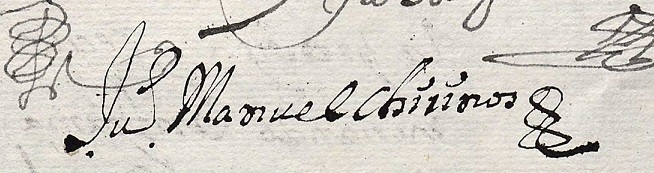 Juº Manuel Chirinos